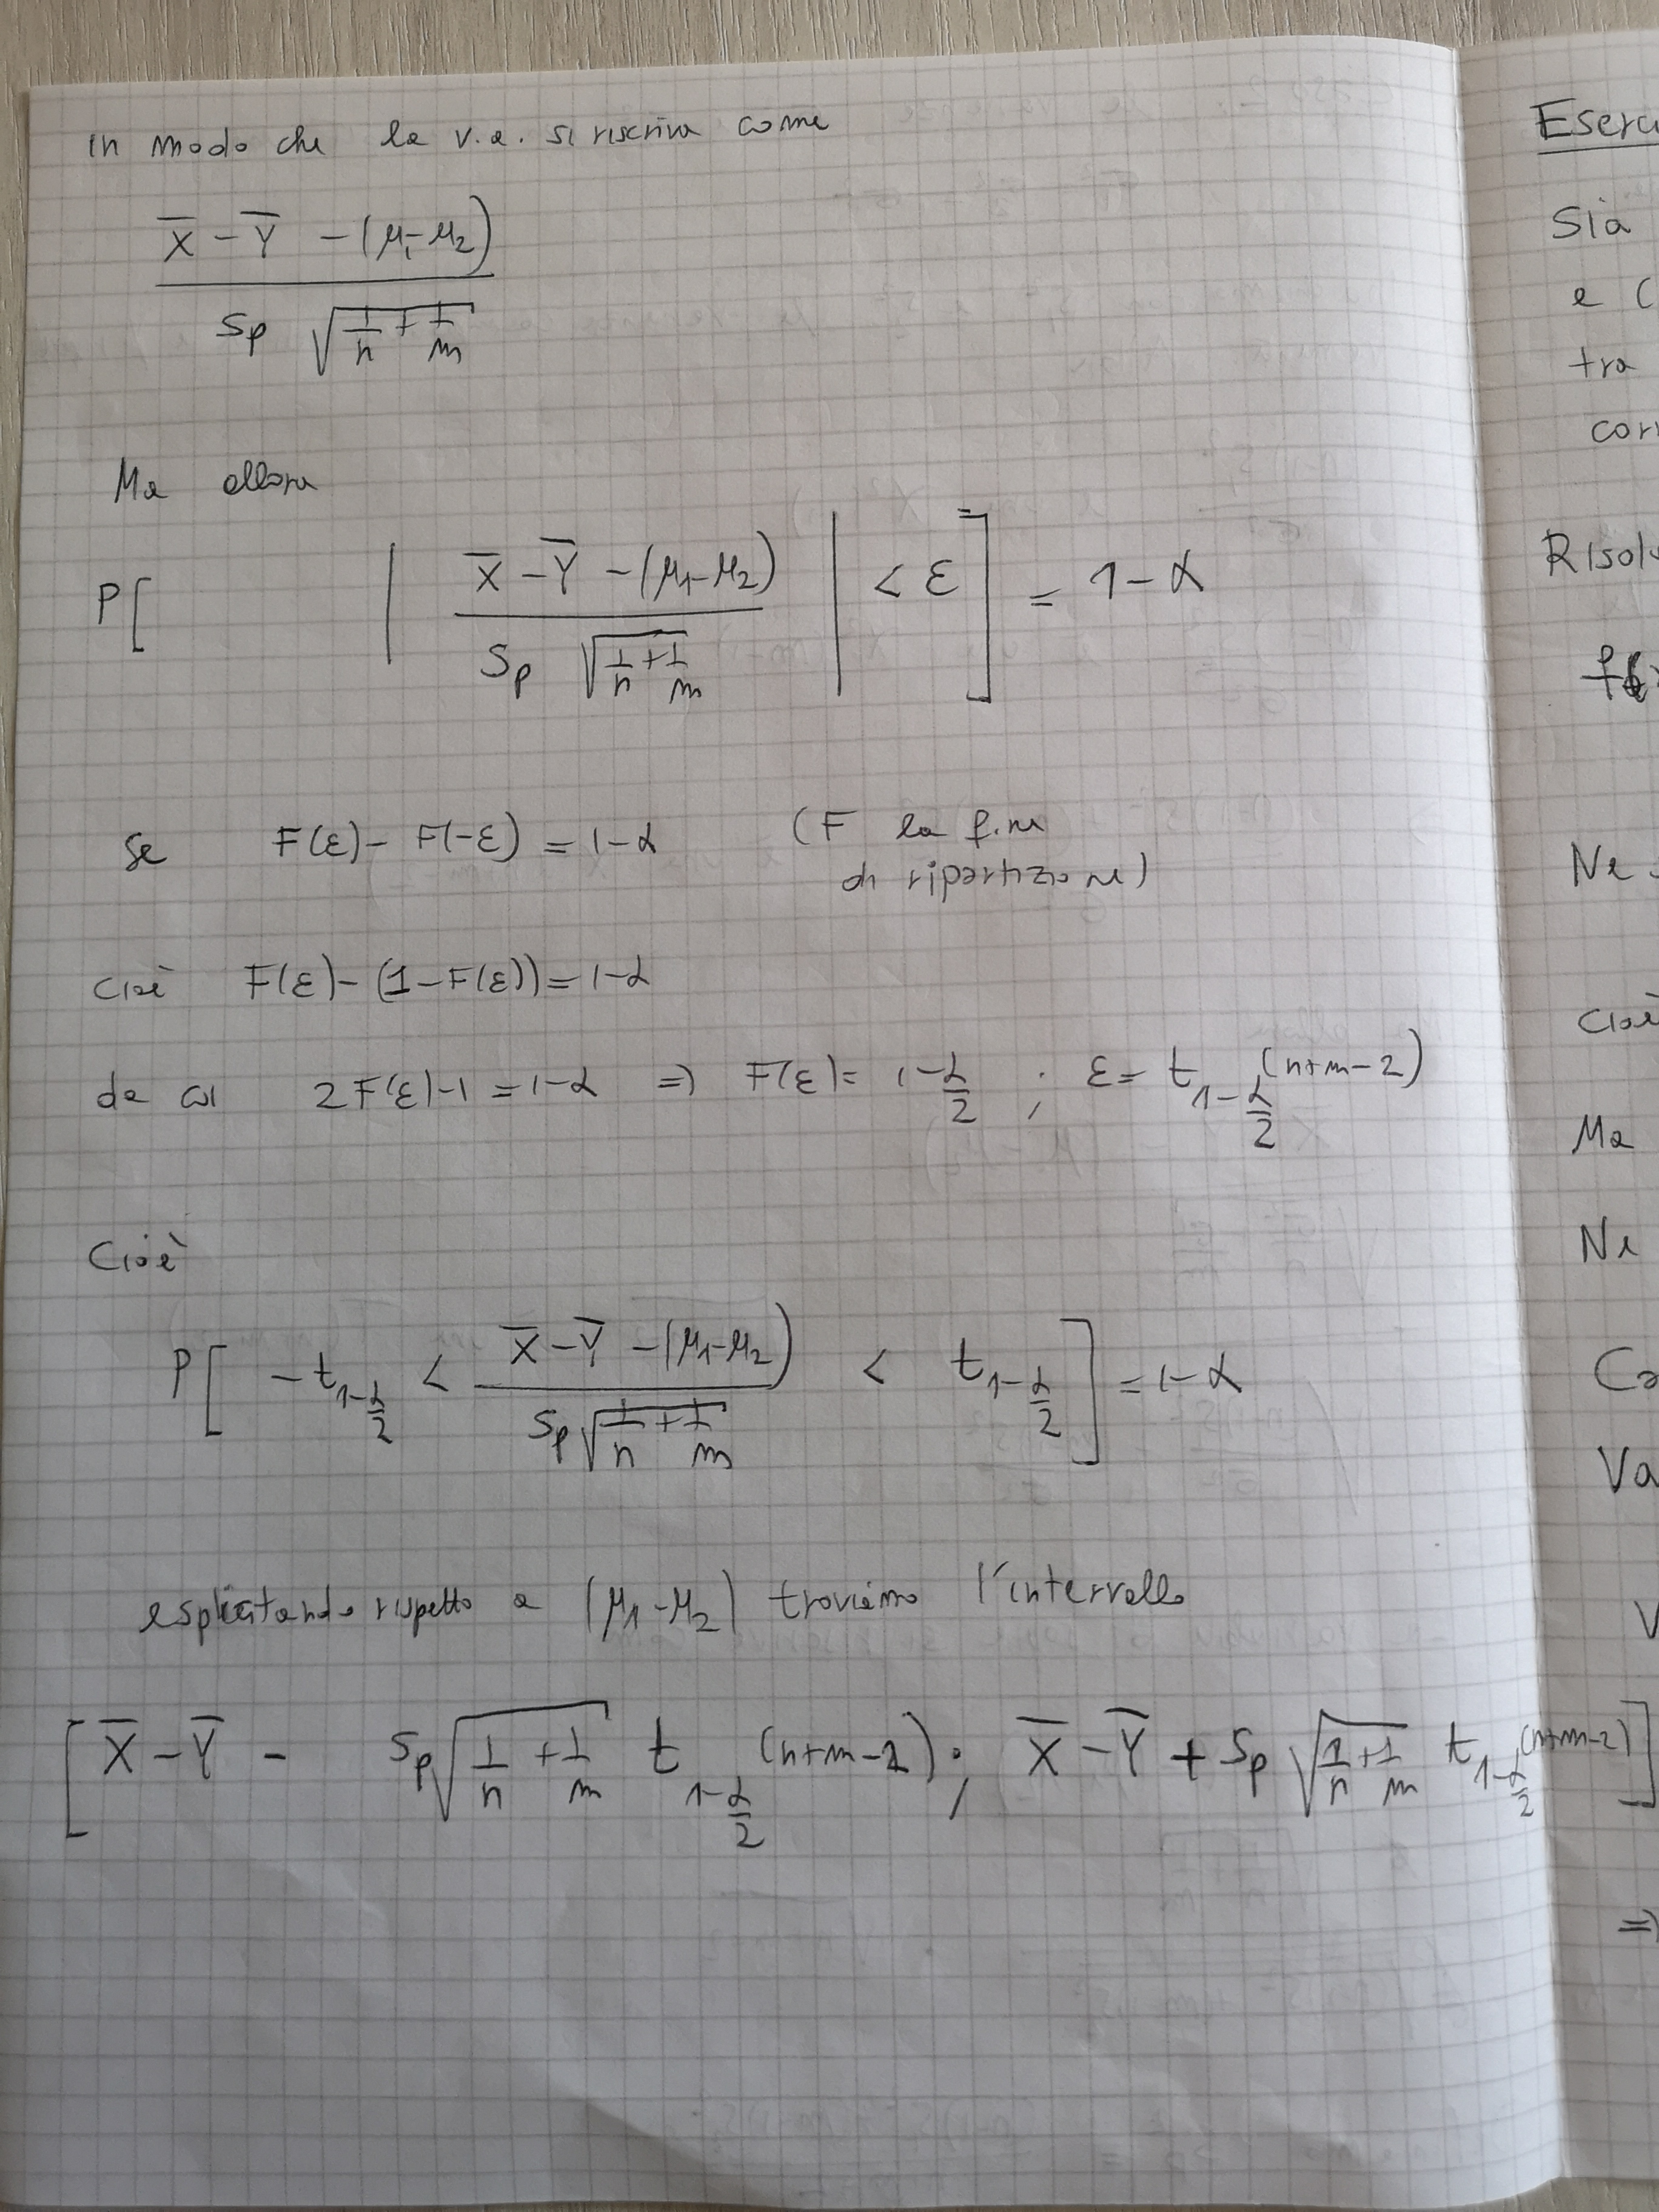 in modo che la v.a. si riscriva come
X̄ - Ȳ - (μ₁-μ₂)
Sp √(1/n + 1/m)
Ma allora
P[ | (X̄ - Ȳ - (μ₁-μ₂)) / (Sp √(1/n + 1/m)) | < ε ] = 1-α
se F(ε) - F(-ε) = 1-α (F la f.ne
di ripartizione)
cioè F(ε) - (1-F(ε)) = 1-α
da cui 2F(ε)-1 = 1-α => F(ε) = 1-α/2 ; ε = t_{1-α/2} (n+m-2)
Cioè
P[ -t_{1-α/2} < (X̄ - Ȳ - (μ₁-μ₂)) / (Sp √(1/n + 1/m)) < t_{1-α/2} ] = 1-α
esplicitando rispetto a (μ₁-μ₂) troviamo l'intervallo
[ X̄ - Ȳ - Sp √(1/n + 1/m) t_{1-α/2} (n+m-2) ; X̄ - Ȳ + Sp √(1/n + 1/m) t_{1-α/2} (n+m-2) ]
Eserci
Sia
e (
tra
corr
Risolu
Ne
cioè
Ma
Ne
Ca
Va
V
=>